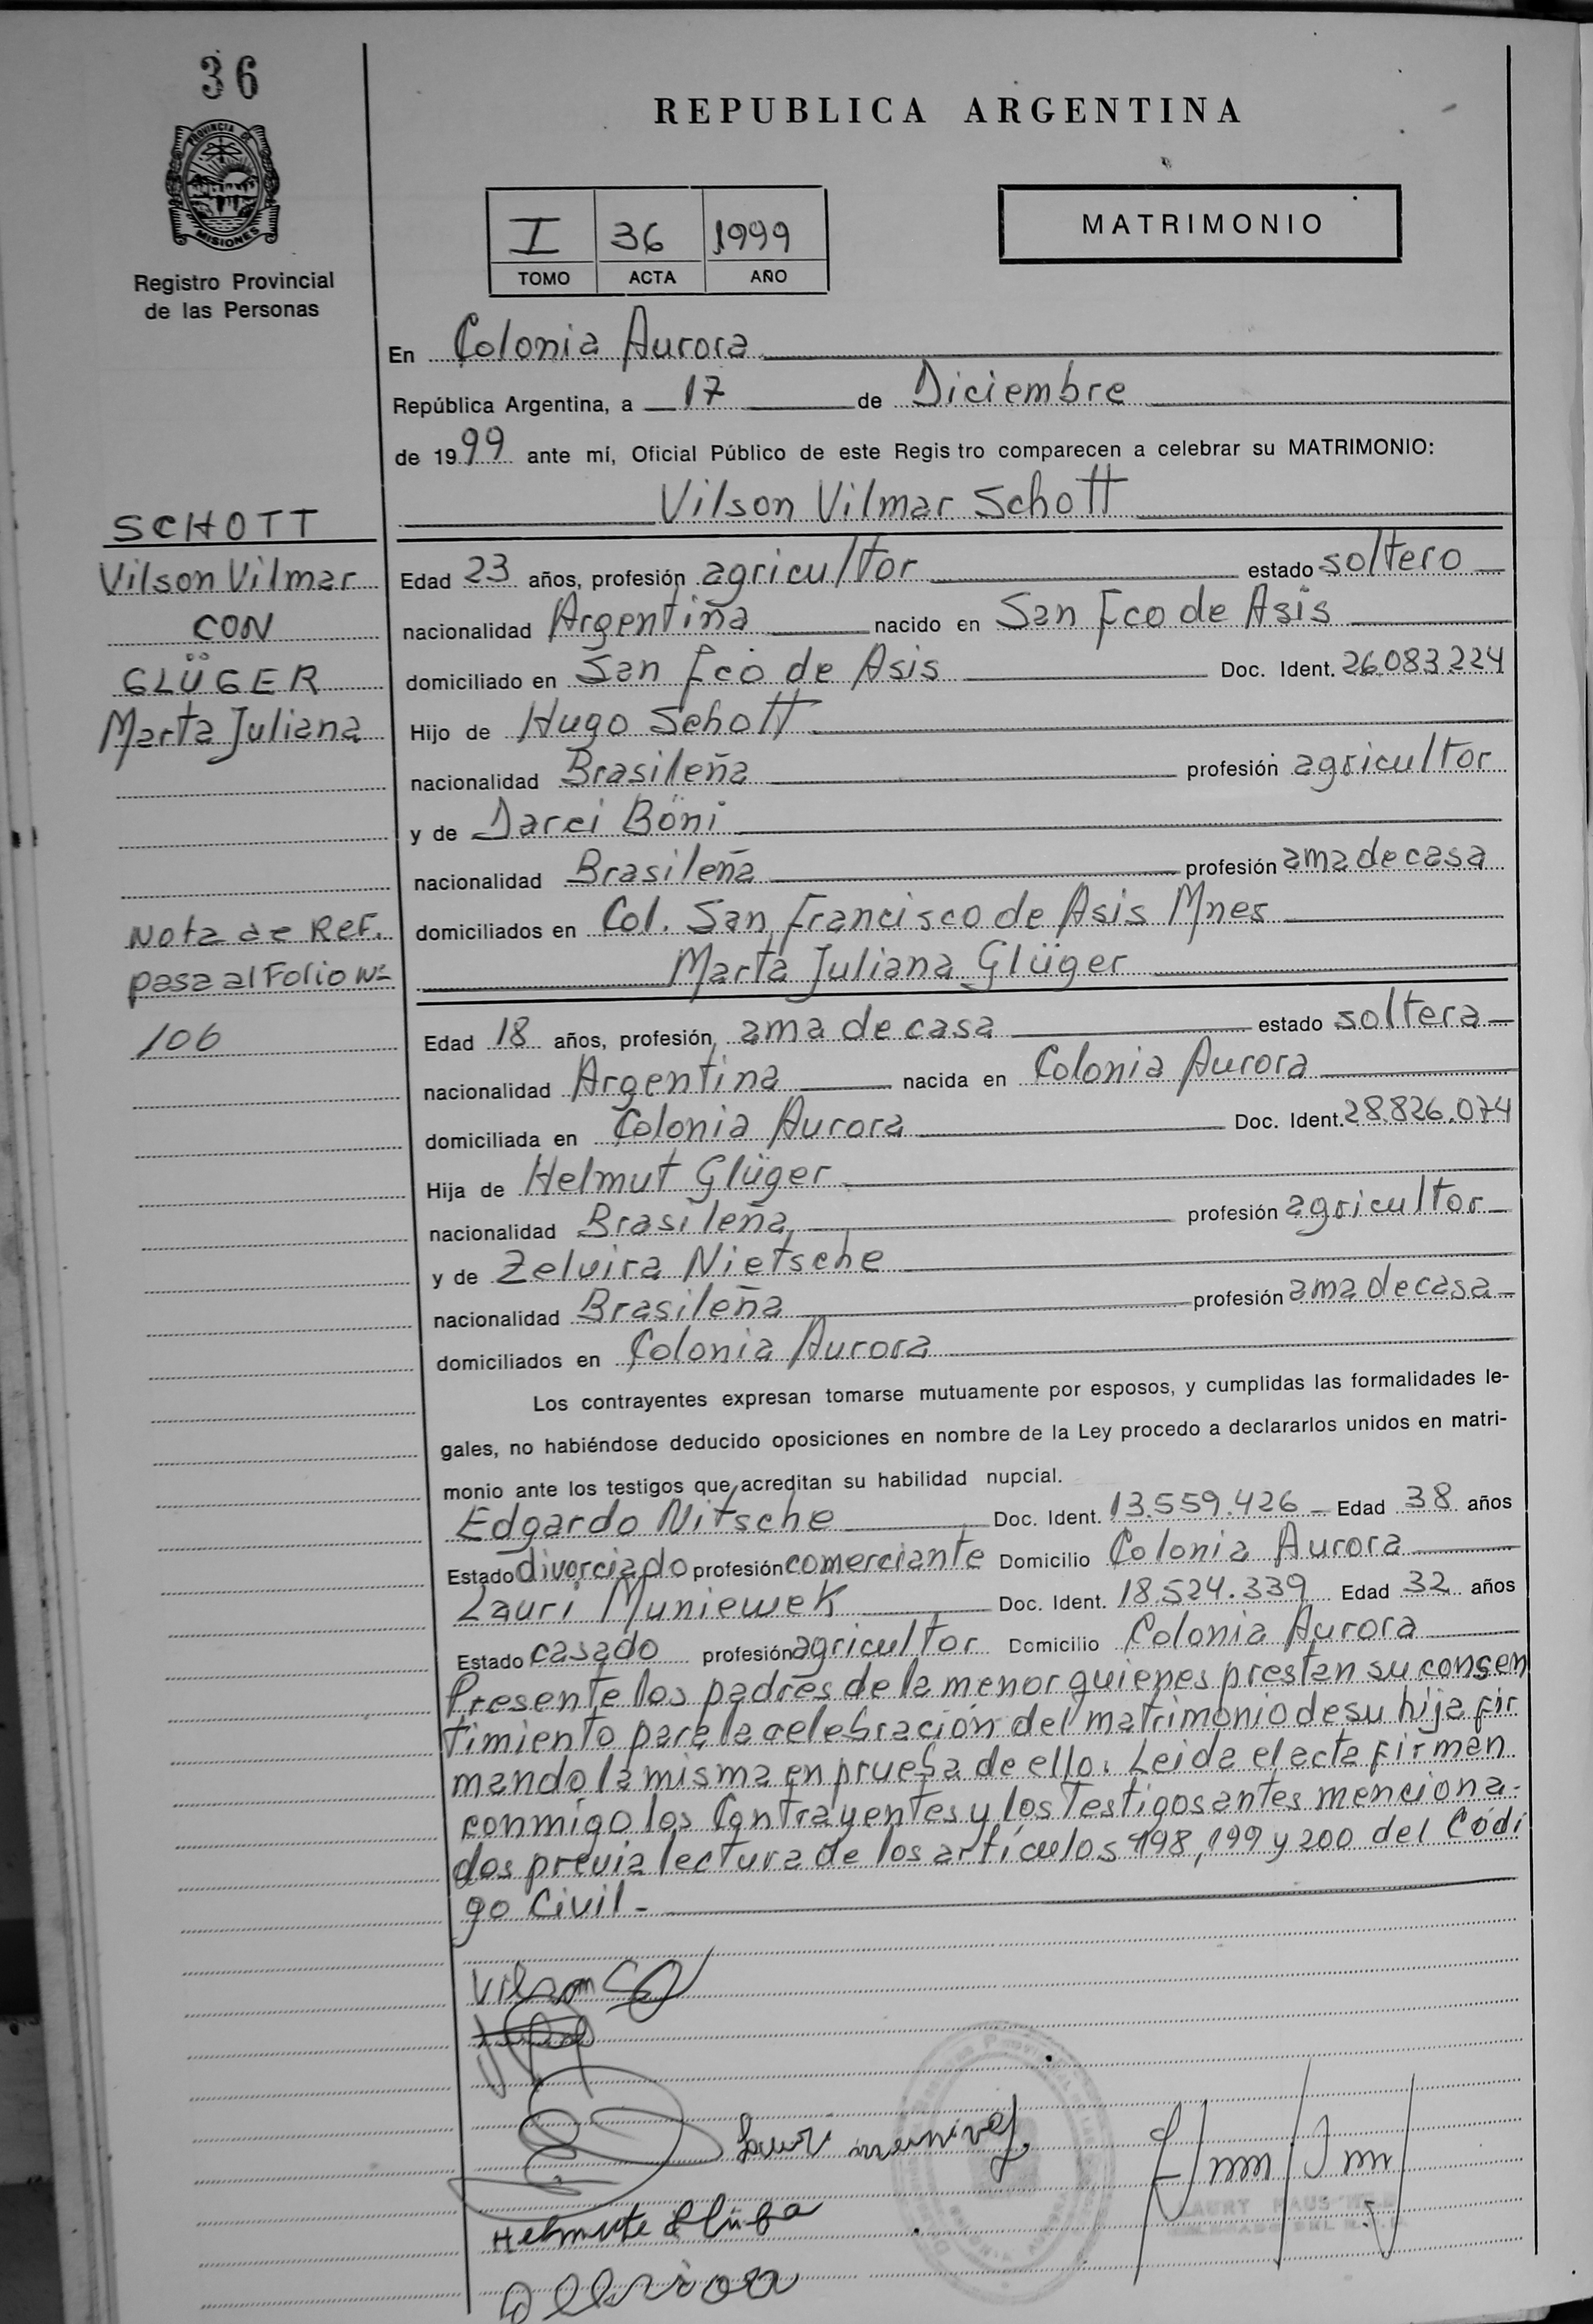 36
REPUBLICA ARGENTINA
PROVINCIA DE
MISIONES
Registro Provincial
de las Personas
I 36 1999
TOMO ACTA AÑO
MATRIMONIO
En Colonia Aurora
República Argentina, a 17 de Diciembre
de 1999 ante mí, Oficial Público de este Regis tro comparecen a celebrar su MATRIMONIO:
Vilson Vilmar Schott
SCHOTT
Vilson Vilmar
CON
GLÜGER
Marta Juliana
Edad 23 años, profesión agricultor estado soltero
nacionalidad Argentina nacido en San Fco de Asis
domiciliado en San Fco de Asis Doc. Ident. 26.083.224
Hijo de Hugo Schott
nacionalidad Brasileña profesión agricultor
y de Darci Böni
nacionalidad Brasileña profesión ama de casa
domiciliados en Col. San Francisco de Asis Mnes
Nota de Ref.
pasa al Folio Nº
106
Marta Juliana Glüger
Edad 18 años, profesión ama de casa estado soltera
nacionalidad Argentina nacida en Colonia Aurora
domiciliada en Colonia Aurora Doc. Ident. 28.826.074
Hija de Helmut Glüger
nacionalidad Brasileña profesión agricultor
y de Zelvira Nietsche
nacionalidad Brasileña profesión ama de casa
domiciliados en Colonia Aurora
Los contrayentes expresan tomarse mutuamente por esposos, y cumplidas las formalidades le-
gales, no habiéndose deducido oposiciones en nombre de la Ley procedo a declararlos unidos en matri-
monio ante los testigos que acreditan su habilidad nupcial.
Edgardo Nitsche Doc. Ident. 13.559.426 Edad 38 años
Estado divorciado profesión comerciante Domicilio Colonia Aurora
Lauri Muniewek Doc. Ident. 18.524.339 Edad 32 años
Estado casado profesión agricultor Domicilio Colonia Aurora
Presente los padres de la menor quienes prestan su consen
timiento para la celebración del matrimonio de su hija fir
mando la misma en prueba de ello. Leida el acta firman
conmigo los Contrayentes y los Testigos antes menciona-
dos previa lectura de los artículos 198, 199 y 200 del Códi
go Civil.-
Vilson